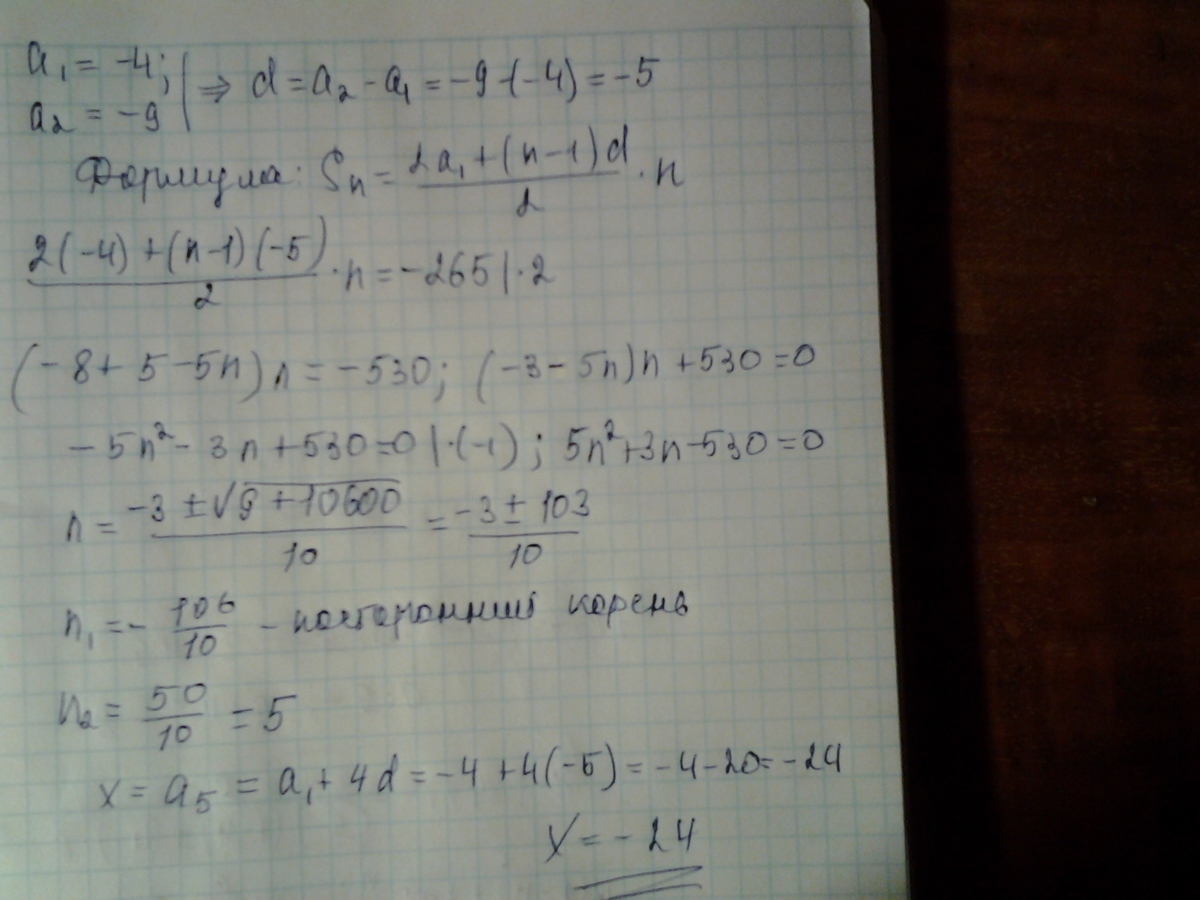 a₁ = -4; | ⇒ d = a₂ - a₁ = -9 - (-4) = -5
a₂ = -9
Формула: Sₙ = (2a₁ + (n-1)d)/2 · n
(2(-4) + (n-1)(-5))/2 · n = -265 | · 2
(-8 + 5 - 5n) n = -530; (-3 - 5n)n + 530 = 0
-5n² - 3n + 530 = 0 | · (-1); 5n² + 3n - 530 = 0
n = (-3 ± √(9 + 10600))/10 = (-3 ± 103)/10
n₁ = - 106/10 - посторонний корень
n₂ = 50/10 = 5
x = a₅ = a₁ + 4d = -4 + 4(-5) = -4 - 20 = -24
x = -24